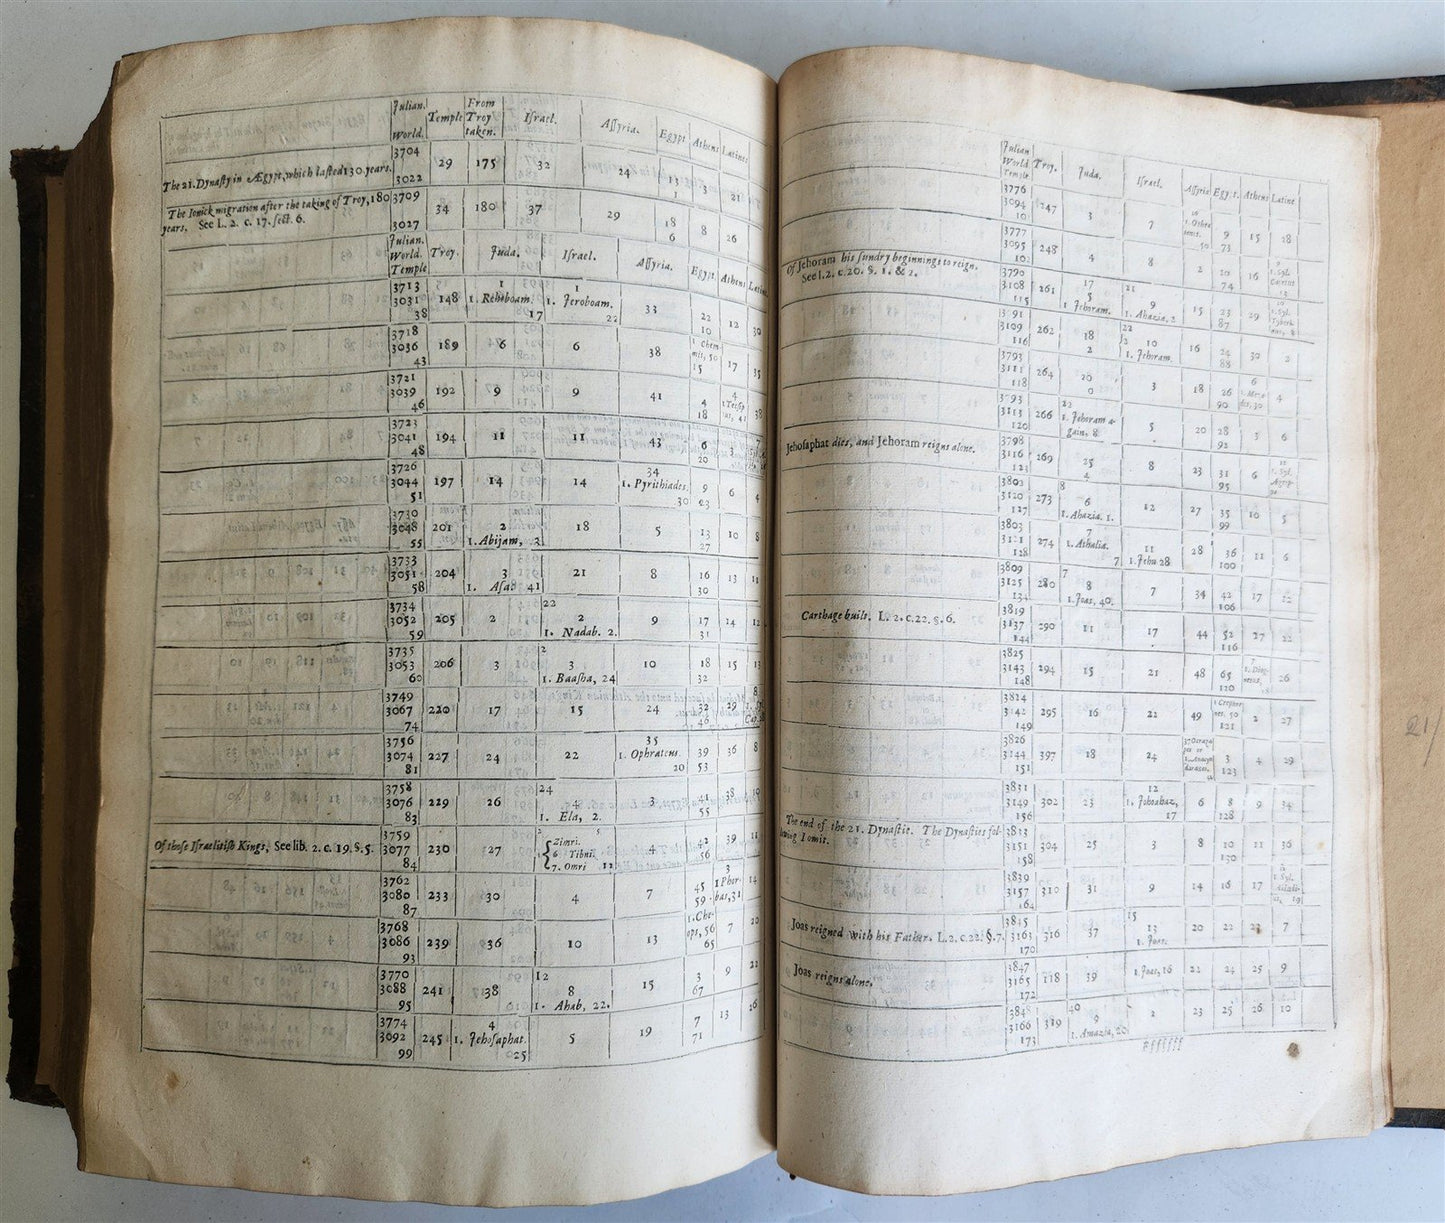 Julian. World. Temple From Troy taken. Iſrael. Aſſyria. Egypt Athens Latines
The 21. Dynaſty in Ægypt, which laſted 130. years. 3704 3022 29 175 32 24 13 1 3 21
The Ionick migration after the taking of Troy, 180 3709 3027 34 180 37 29 18 6 8 26
years. See L. 2. c. 17. ſect. 6.
Julian. World. Temple Troy. Juda. Iſrael. Aſſyria. Egypt. Athens
3713 3031 38 148 1 1. Rehoboam. 17 1 1. Jeroboam. 22 33 22 10 12 30
3718 3036 43 189 6 6 38 1 Chem- mis, 50 15 17 35
3721 3039 46 192 9 9 41 4 18 4 38
3723 3041 48 194 11 11 43 6 20 3
3726 3044 51 197 14 14 34 1. Pyrithiades. 30 9 23 6 4
3730 3048 55 201 2 1. Abijam, 3. 18 5 13 27 10 8
3733 3051 58 204 3 1. Aſa 41 21 8 16 30 13 11
3734 3052 59 205 2 22 2 1. Nadab. 2. 9 17 31 14 12
3735 3053 60 206 3 2 3 1. Baaſha, 24 10 18 32 15 13
3749 3067 74 220 17 15 24 32 46 29 8
3756 3074 81 227 24 22 35 1. Ophrateus. 20 39 53 36 8
3758 3076 83 229 26 24 4 1. Ela, 2. 3 41 55 38 10
Of thoſe Iſraelitiſh Kings, See lib. 2. c. 19. §. 5. 3759 3077 84 230 27 Zimri. 6 Tibni. 7. Omri 11 4 42 56 39 11
3762 3080 87 233 30 4 7 45 59 3 1 Phor- bas, 31 14
3768 3086 93 239 36 10 13 1. Che- ops, 56 65 7 20
3770 3088 95 241 38 12 8 1. Ahab, 22. 15 3 67 9 22
3774 3092 99 245 4 1. Jehoſaphat. 25 5 19 7 71 13 26
Julian World Temple Troy. Juda. Iſrael. Aſſyria Egypt. Athens Latine
3776 3094 10 247 3 7 50 9 73 15 28
3777 3095 102 248 4 8 2 10 74 16
Of Jehoram his ſundry beginnings to reign. 3790 3108 115 261 17 5 1. Jehoram. 21 9 1. Ahazia, 2 15 23 87 29
See l. 2. c. 20. §. 1. & 2.
3791 3109 116 262 18 2 22 10 1. Jehoram. 16 24 88 30 2
3793 3111 118 264 20 3 18 26 90 4
3793 3113 120 266 22 1. Jehoram a- gain. 8 5 20 28 92 3 6
Jehoſaphat dies, and Jehoram reigns alone. 3798 3116 123 269 25 4 8 23 31 95 6
3802 3120 127 273 8 6 1. Ahazia. 1. 12 27 35 99 10 5
3803 3121 128 274 1. Athalia. 7 11 1. Jehu 28 28 36 100 11 6
3809 3125 134 280 7 8 1. Joas, 40. 7 34 42 106 17 12
Carthage built. L. 2. c. 22. §. 6. 3819 3137 144 290 11 17 44 52 116 27 22
3825 3143 148 294 15 21 48 65 120 26
3824 3142 149 295 16 22 49 121 2 27
3826 3144 151 397 18 24 3 123 4 29
3831 3149 156 302 23 12 1. Jehoahaz, 17 6 8 128 9 34
The end of the 21. Dynaſtie. The Dynaſties fol- 3833 3151 158 304 25 3 8 10 130 11 36
lowing I omit.
3839 3157 164 310 31 9 14 16 17
Joas reigned with his Father. L. 2. c. 22. §. 7. 3845 3163 170 316 37 15 13 1. Joas. 20 22 23 7
Joas reigns alone. 3847 3165 172 118 39 1 Joas, 16 22 24 25 9
3848 3166 173 319 40 9 1. Amazia, 20 2 23 25 26 10
21/